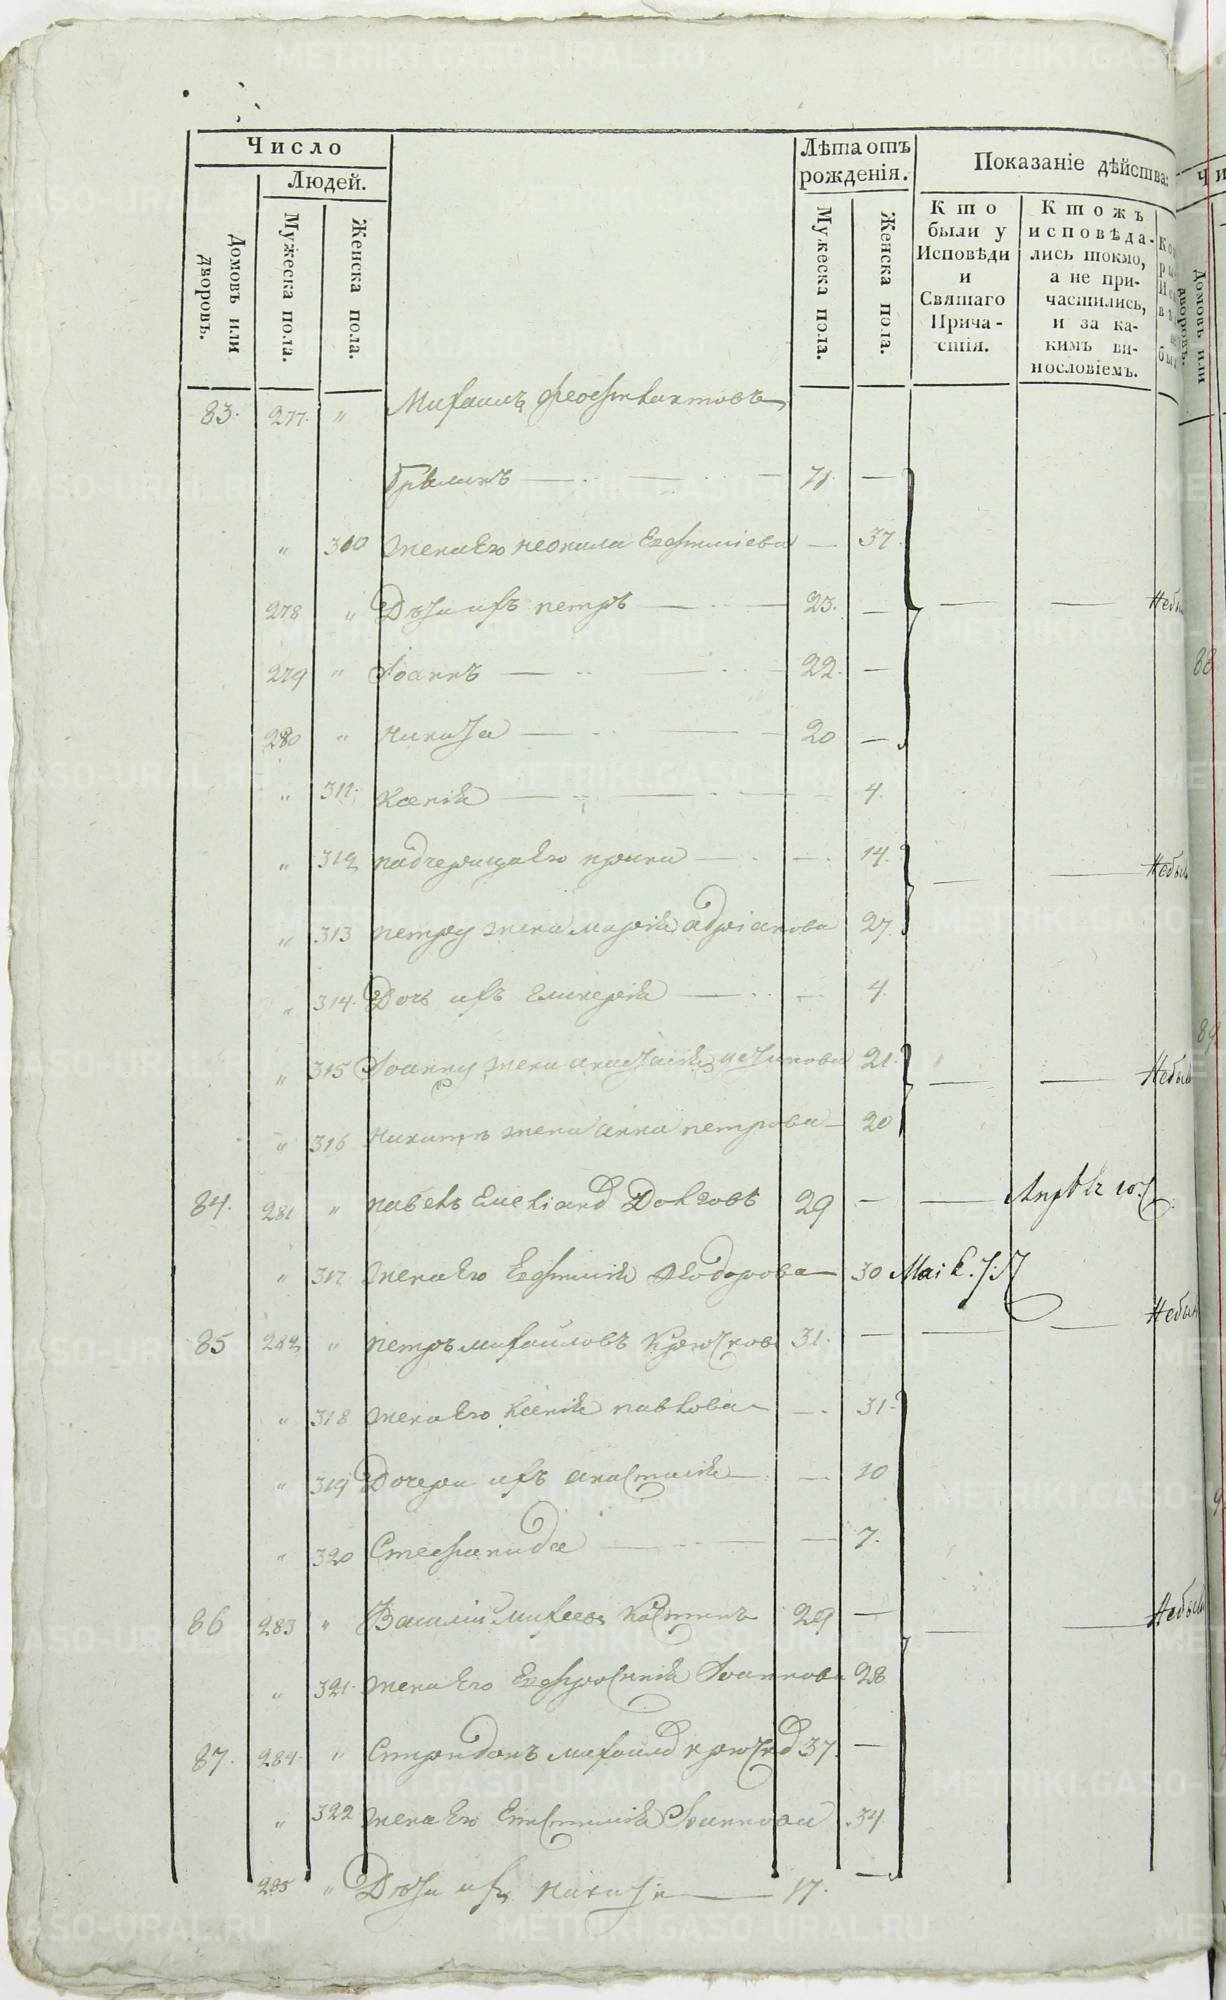 Число
Людей.
Домовъ или дворовъ.
Мужеска пола.
Женска пола.
Лѣта отъ рожденія.
Мужеска пола.
Женска пола.
Показаніе дѣйства:
Кто были у Исповѣди и Святаго Причастія.
Ктожъ исповѣдались токмо, а не причастились, и за какимъ винословіемъ.
83. 277. " Михаилъ Феофилактовъ
71. —
" 310 жена его неонила Евфиміева — 37.
278 " Дѣти ихъ петръ 23. — Небы
279 " Іоаннъ 22. —
280 " никита 20 —
" 311. Ксенія 4.
" 312 падчерица его — 14. Небыл
" 313 петру жена марія адріанова 27.
" 314. Дочь ихъ Гликерія — 4.
" 315 Іоанну жена анастасія устинова 21. Небыл
" 316 никитѣ жена анна петрова 20
84. 281 " павелъ Долговъ 29 —
" 317. жена его Евфимія Ѳеодорова 30
85 282 " петръ михайловъ Крючковъ 31. — Небыл
" 318 жена его Ксенія павлова — 31.
" 319 Дочери ихъ анастасія — 10
" 320 Стефанида — 7.
86 283 " Василій Костинъ 29 — Небыл
" 321. жена его Евфросинія Іоаннова 28
87. 284. " Спиридонъ михайлов крючков 37. —
" 322 жена его Іоаннова 34.
285 " Дѣти ихъ никита 17. —
88
89
METRIKI.GASO-URAL.RU